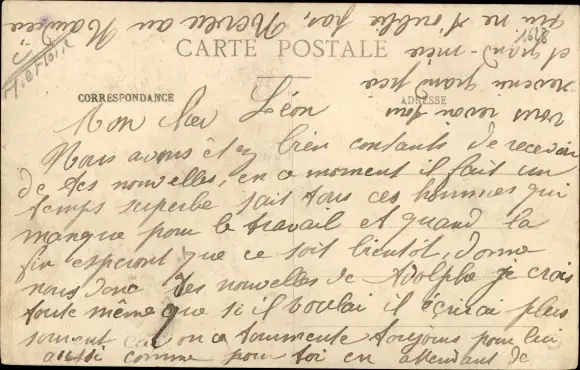 CARTE POSTALE
CORRESPONDANCE
ADRESSE
Mon cher Léon
Nous avons étez bien contants de recevoir
de tes nouvelles, en ce moment il fait un
temps superbe sait tous ces hommes qui
manque pour le travail et quand la
fin esperont que ce soit bientôt, donne
nous donc des nouvelles de Adolphe je crois
toute même que si il voulai il écrirai plus
souvent car on ce tourmente toujours pour lui
aussi comme pour toi en attendant de
vous revoir tous
revenir grand père
et grand-mère
qui ne t'oublie pas,